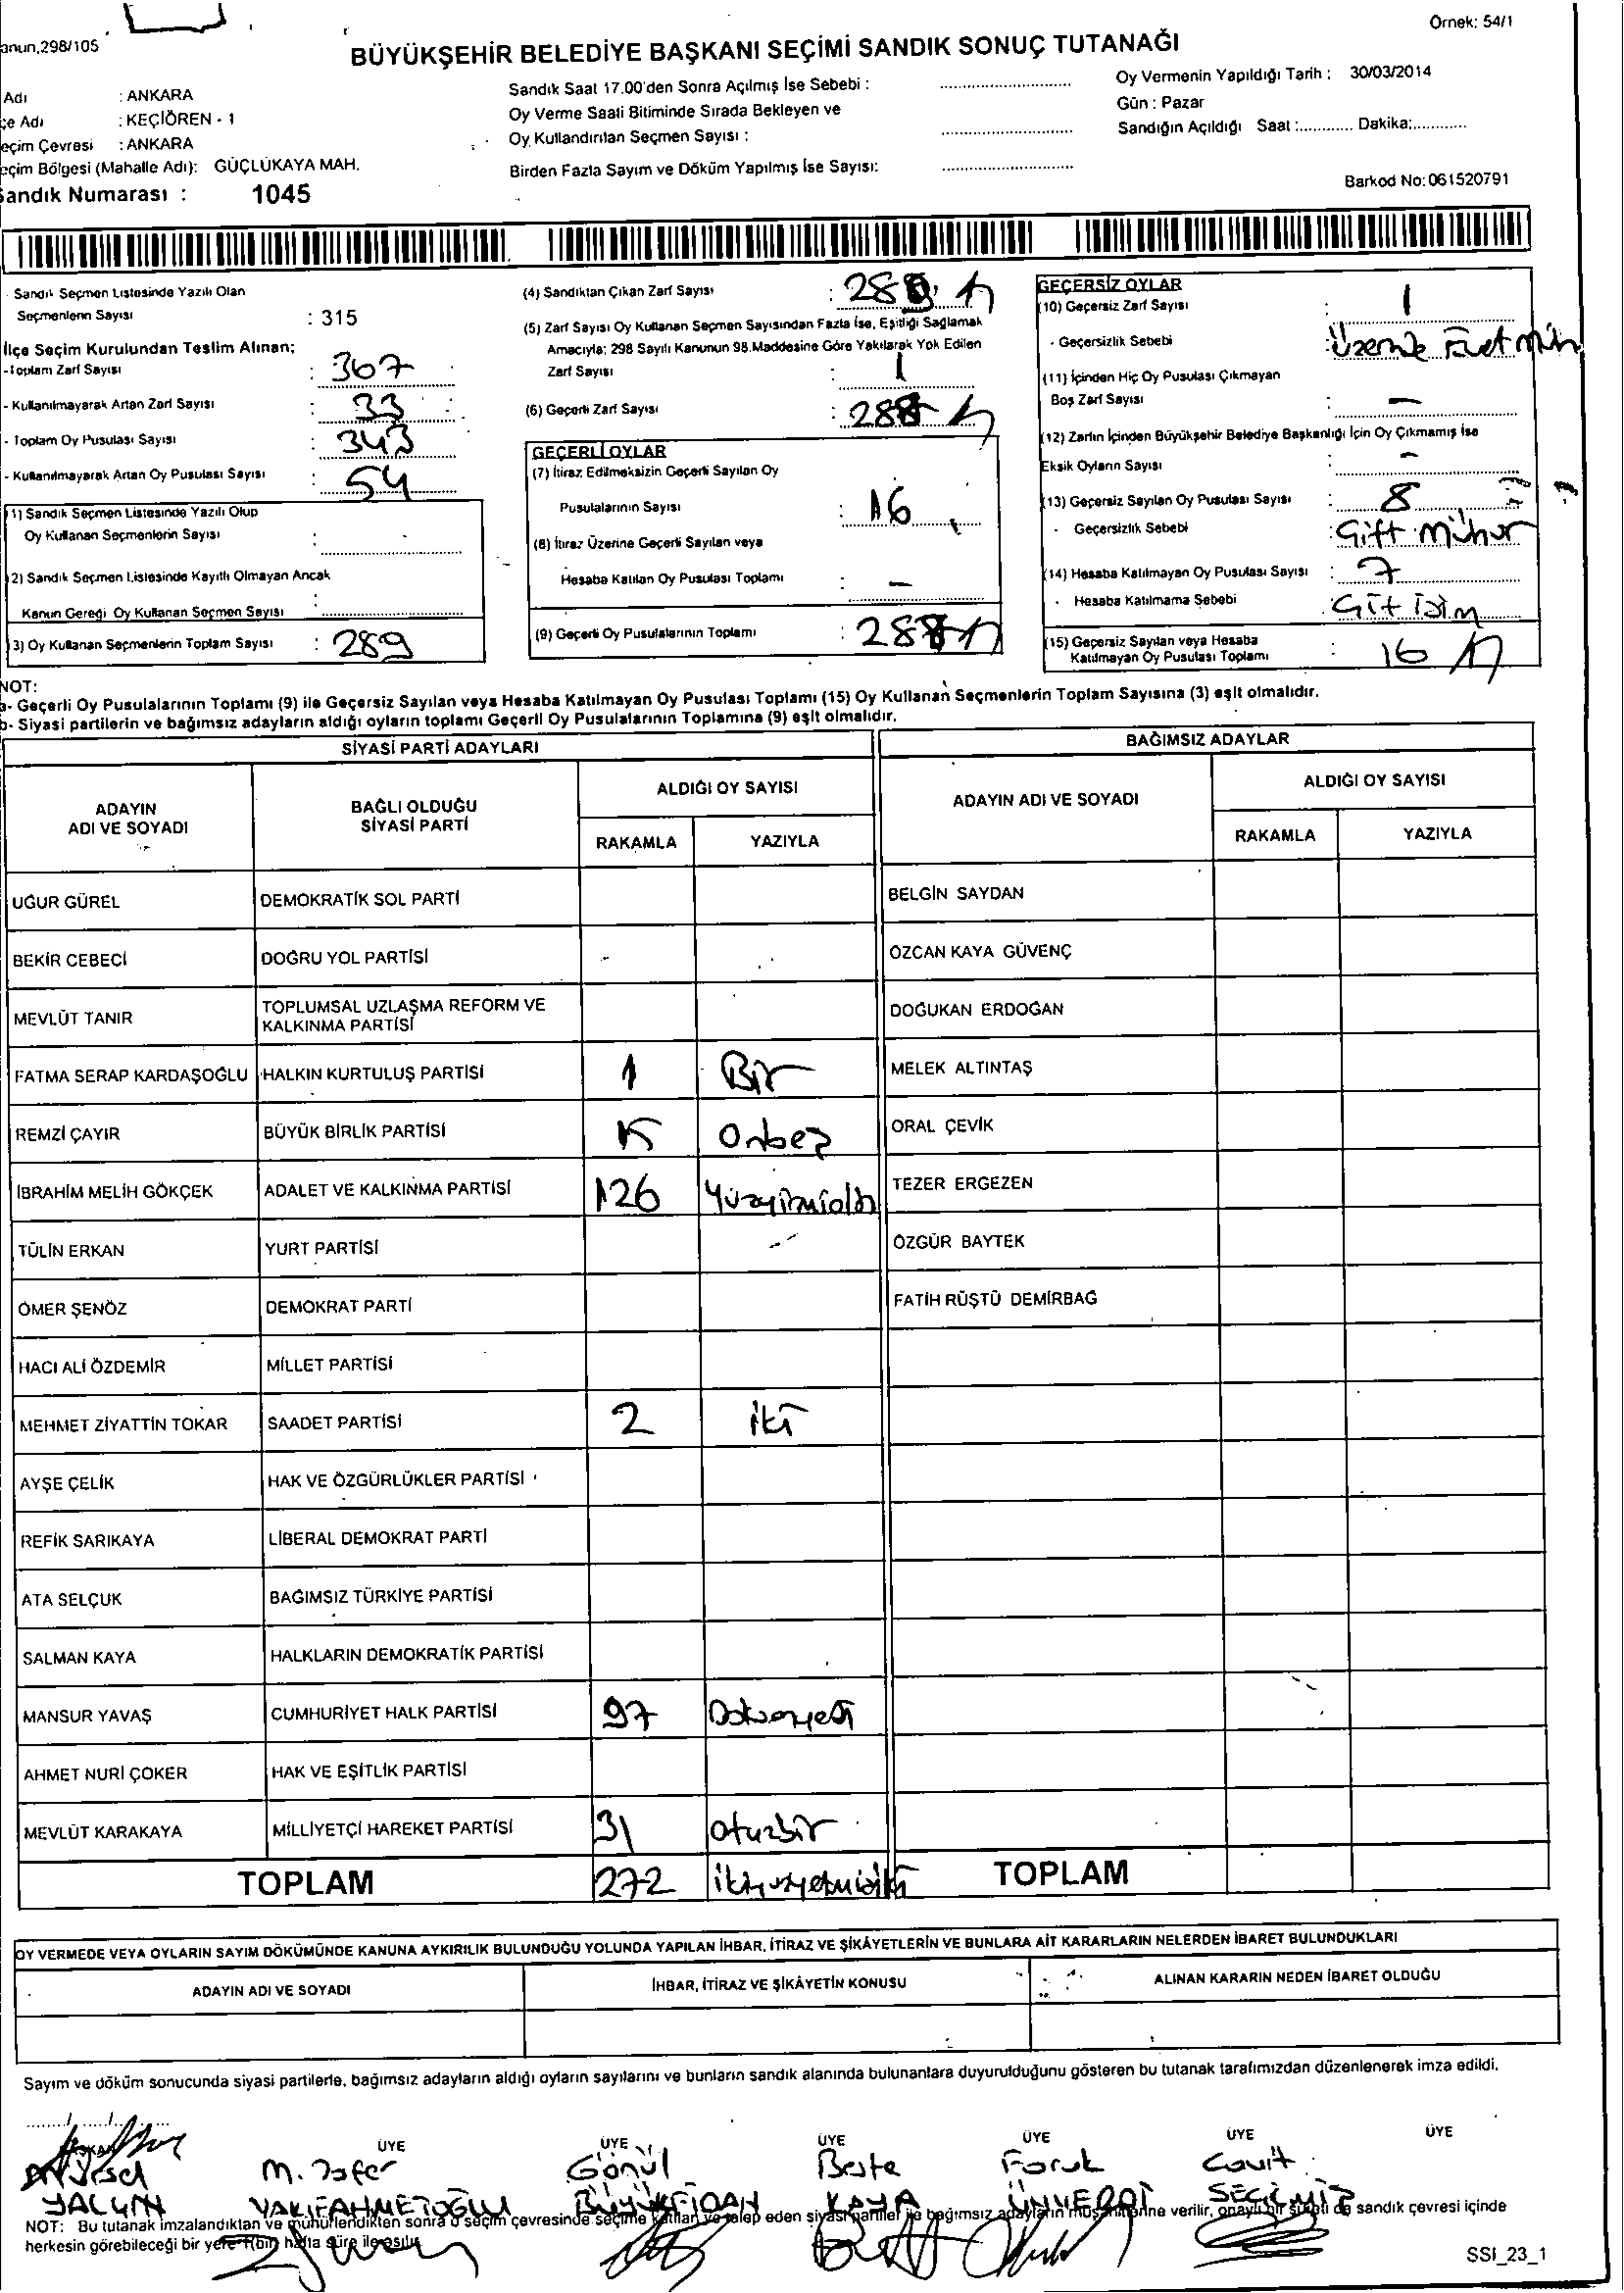 Örnek: 54/1
anun,298/105
BÜYÜKŞEHİR BELEDİYE BAŞKANI SEÇİMİ SANDIK SONUÇ TUTANAĞI
Adı : ANKARA
çe Adı : KEÇİÖREN - 1
eçim Çevresi : ANKARA
eçim Bölgesi (Mahalle Adı): GÜÇLÜKAYA MAH.
Sandık Numarası : 1045
Sandık Saat 17.00'den Sonra Açılmış İse Sebebi :
Oy Verme Saati Bitiminde Sırada Bekleyen ve
Oy Kullandırılan Seçmen Sayısı :
Birden Fazla Sayım ve Döküm Yapılmış İse Sayısı:
Oy Vermenin Yapıldığı Tarih : 30/03/2014
Gün : Pazar
Sandığın Açıldığı Saat :............ Dakika:............
Barkod No:061520791
Sandık Seçmen Listesinde Yazılı Olan
Seçmenlerin Sayısı : 315
İlçe Seçim Kurulundan Teslim Alınan;
-Toplam Zarf Sayısı : 367
- Kullanılmayarak Artan Zarf Sayısı : 33
- Toplam Oy Pusulası Sayısı : 343
- Kullanılmayarak Artan Oy Pusulası Sayısı : 54
1) Sandık Seçmen Listesinde Yazılı Olup
Oy Kullanan Seçmenlerin Sayısı :
2) Sandık Seçmen Listesinde Kayıtlı Olmayan Ancak
Kanun Gereği Oy Kullanan Seçmen Sayısı :
3) Oy Kullanan Seçmenlerin Toplam Sayısı : 289
(4) Sandıktan Çıkan Zarf Sayısı :
(5) Zarf Sayısı Oy Kullanan Seçmen Sayısından Fazla İse, Eşitliği Sağlamak
Amacıyla; 298 Sayılı Kanunun 98.Maddesine Göre Yakılarak Yok Edilen
Zarf Sayısı : 1
(6) Geçerli Zarf Sayısı : 288
GEÇERLİ OYLAR
(7) İtiraz Edilmeksizin Geçerli Sayılan Oy
Pusulalarının Sayısı : 16
(8) İtiraz Üzerine Geçerli Sayılan veya
Hesaba Katılan Oy Pusulası Toplamı : -
(9) Geçerli Oy Pusulalarının Toplamı :
GEÇERSİZ OYLAR
(10) Geçersiz Zarf Sayısı : 1
- Geçersizlik Sebebi :
(11) İçinden Hiç Oy Pusulası Çıkmayan
Boş Zarf Sayısı : -
(12) Zarfın İçinden Büyükşehir Belediye Başkanlığı İçin Oy Çıkmamış İse
Eksik Oyların Sayısı : -
(13) Geçersiz Sayılan Oy Pusulası Sayısı : 8
- Geçersizlik Sebebi : Çift Mühür
(14) Hesaba Katılmayan Oy Pusulası Sayısı : 7
- Hesaba Katılmama Sebebi
(15) Geçersiz Sayılan veya Hesaba
Katılmayan Oy Pusulası Toplamı : 16
NOT:
a- Geçerli Oy Pusulalarının Toplamı (9) ile Geçersiz Sayılan veya Hesaba Katılmayan Oy Pusulası Toplamı (15) Oy Kullanan Seçmenlerin Toplam Sayısına (3) eşit olmalıdır.
b- Siyasi partilerin ve bağımsız adayların aldığı oyların toplamı Geçerli Oy Pusulalarının Toplamına (9) eşit olmalıdır.
SİYASİ PARTİ ADAYLARI
ADAYIN
ADI VE SOYADI
BAĞLI OLDUĞU
SİYASİ PARTİ
ALDIĞI OY SAYISI
RAKAMLA YAZIYLA
UĞUR GÜREL DEMOKRATİK SOL PARTİ
BEKİR CEBECİ DOĞRU YOL PARTİSİ
MEVLÜT TANIR TOPLUMSAL UZLAŞMA REFORM VE
KALKINMA PARTİSİ
FATMA SERAP KARDAŞOĞLU HALKIN KURTULUŞ PARTİSİ 1 Bir
REMZİ ÇAYIR BÜYÜK BİRLİK PARTİSİ 15 Onbeş
İBRAHİM MELİH GÖKÇEK ADALET VE KALKINMA PARTİSİ 126 Yüzyirmialtı
TÜLİN ERKAN YURT PARTİSİ
ÖMER ŞENÖZ DEMOKRAT PARTİ
HACI ALİ ÖZDEMİR MİLLET PARTİSİ
MEHMET ZİYATTİN TOKAR SAADET PARTİSİ 2 iki
AYŞE ÇELİK HAK VE ÖZGÜRLÜKLER PARTİSİ
REFİK SARIKAYA LİBERAL DEMOKRAT PARTİ
ATA SELÇUK BAĞIMSIZ TÜRKİYE PARTİSİ
SALMAN KAYA HALKLARIN DEMOKRATİK PARTİSİ
MANSUR YAVAŞ CUMHURİYET HALK PARTİSİ 97 Doksanyedi
AHMET NURİ ÇOKER HAK VE EŞİTLİK PARTİSİ
MEVLÜT KARAKAYA MİLLİYETÇİ HAREKET PARTİSİ 31 otuzbir
TOPLAM 272 ikiyüzyetmişiki
BAĞIMSIZ ADAYLAR
ADAYIN ADI VE SOYADI
ALDIĞI OY SAYISI
RAKAMLA YAZIYLA
BELGİN SAYDAN
ÖZCAN KAYA GÜVENÇ
DOĞUKAN ERDOĞAN
MELEK ALTINTAŞ
ORAL ÇEVİK
TEZER ERGEZEN
ÖZGÜR BAYTEK
FATİH RÜŞTÜ DEMİRBAĞ
TOPLAM
OY VERMEDE VEYA OYLARIN SAYIM DÖKÜMÜNDE KANUNA AYKIRILIK BULUNDUĞU YOLUNDA YAPILAN İHBAR, İTİRAZ VE ŞİKÂYETLERİN VE BUNLARA AİT KARARLARIN NELERDEN İBARET BULUNDUKLARI
ADAYIN ADI VE SOYADI İHBAR, İTİRAZ VE ŞİKÂYETİN KONUSU ALINAN KARARIN NEDEN İBARET OLDUĞU
Sayım ve döküm sonucunda siyasi partilerle, bağımsız adayların aldığı oyların sayılarını ve bunların sandık alanında bulunanlara duyurulduğunu gösteren bu tutanak tarafımızdan düzenlenerek imza edildi.
......./......./............
BAŞKAN ÜYE ÜYE ÜYE ÜYE ÜYE ÜYE
Nursel M. Zafer Gönül Beste Faruk Cavit
YALÇIN VAKIFAHMETOĞLU BÜYÜKFİDAN KAYA ÜNVERDİ SEÇİLMİŞ
NOT: Bu tutanak imzalandıktan ve mühürlendikten sonra o seçim çevresinde seçime katılan ve talep eden siyasi partiler ile bağımsız adayların müşahitlerine verilir, onaylı bir sureti de sandık çevresi içinde
herkesin görebileceği bir yere 1(bir) hafta süre ile asılır.
SSI_23_1